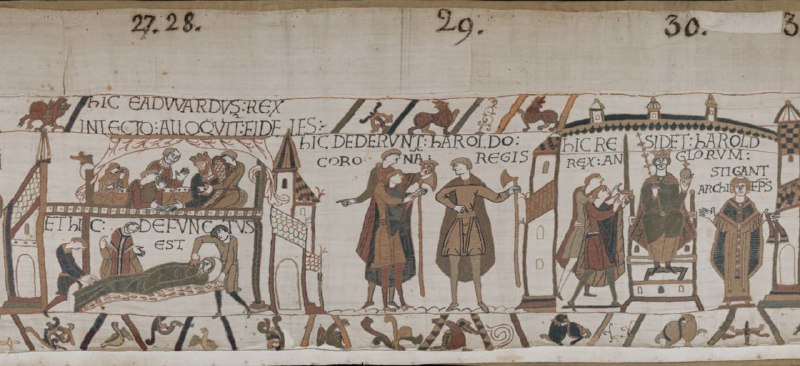 27. 28.
29.
30.
3
hIC EADWARDVS: REX
IN LECTO: ALLOQVIT: FIDELES:
ET hIC: DEFVNCTVS
EST
hIC DEDERVNT: hAROLDO:
CORONA: REGIS
hIC RESIDET: hAROLD
REX: ANGLORVM:
STIGANT
ARChIEPS